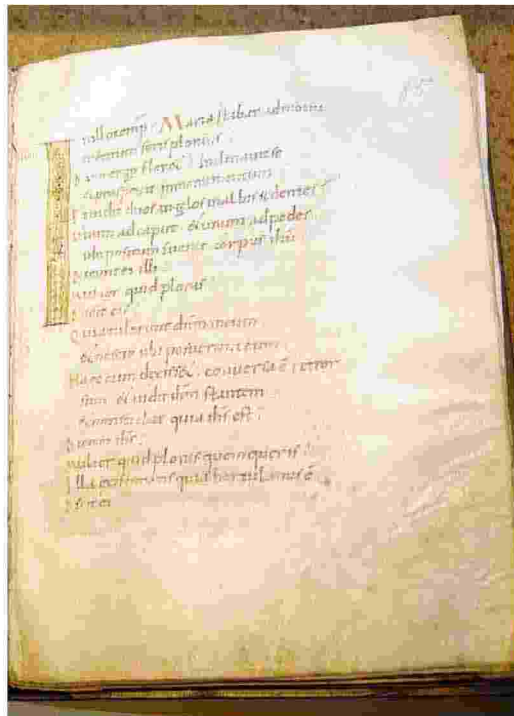 n illo temp Maria stabat ad monu
mentum foris plorans
Dum ergo fleret Inclinauit se
prospexit in monumentum
& uidit duos anglos in albis sedentes
unum ad caput & unum ad pedes
ubi positum fuerat corpus ihu
Dicunt ei illi
mulier quid ploras
Dicit eis
Quia tulerunt dnm meum
& nescio ubi posuerunt eum
Haec cum dixisset conuersa e retror
sum & uidit ihm stantem
& quia ihs est
Dicit ihs
mulier quid ploras quem queris
Illa existimans quia hortulanus e
Dicit ei